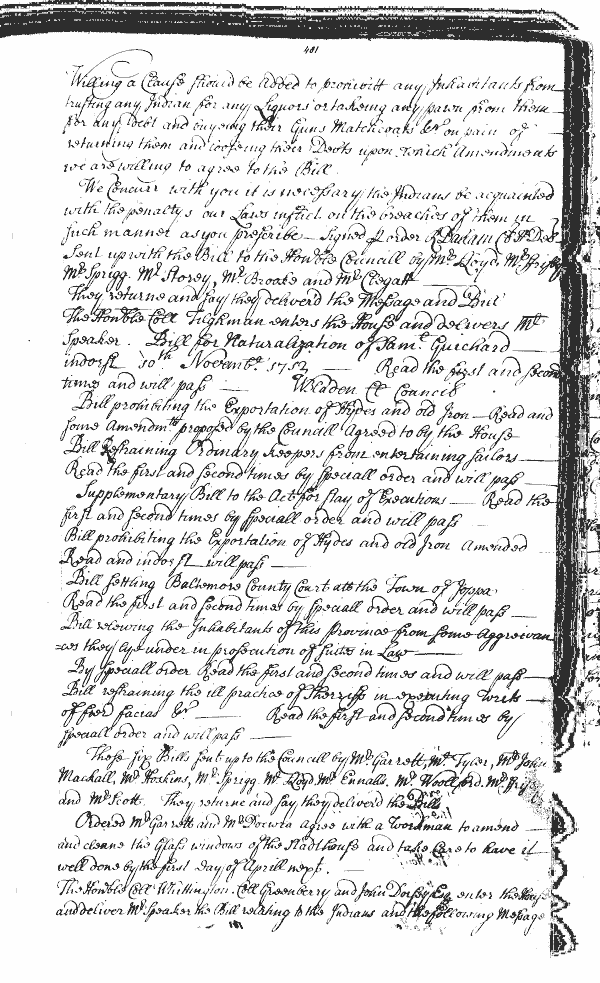 401
Willing a Clause should be added to prohibitt any Inhabitants from
trusting any Indian for any Liquors or takeing any pawn from them
for any debt and buyeing their Guns Matchcoats &c on pain of
returning them and looseing their Debts upon which Amendments
we are willing to agree to the Bill
We Concurr with you it is necessary the Indians be acquainted
with the penaltys our Laws inflict on the breaches of them in
such manner as you prescribe Signed p order R Dallam Cl h Del
Sent up with the Bill to the Honble Councill by Mr Lloyd, Mr Frisby
Mr Sprigg. Mr Storey, Mr Brooke and Mr Clegatt
They returne and say they deliverd the Message and Bill
The Honble Coll Tilghman enters the House and delivers Mr
Speaker. Bill for Naturalization of Saml Guichard
indorst 10th Novembr 1712 Read the first and second
times and will pass WBladen Cl Councll
Bill prohibiting the Exportation of Hydes and old Iron Read and
some Amendmts proposed by the Councill Agreed to by the House
Bill Restraining Ordinary keepers from entertaining Sailors
Read the first and second times by speciall order and will pass
Supplementary Bill to the Act for stay of Executions Read the
first and second times by speciall order and will pass
Bill prohibiting the Exportation of Hydes and old Iron Amended
Read and indorst will pass
Bill settling Baltemore County Court att the Town of Joppa
Read the first and second times by speciall order and will pass
Bill releiving the Inhabitants of this Province from some Aggreivan
=ces they lye under in prosecution of suites in Law
By speciall order Read the first and second times and will pass
Bill restraining the ill practice of Sherriffs in executing writs
of fieri facias &c Read the first and second times by
speciall order and will pass
These six Bills sent up to the Councill by Mr Garrett, Mr Tyler, Mr John
Mackall, Mr Hoskins, Mr Sprigg. Mr Lloyd Mr Ennalls. Mr Woolford. Mr Frisby
and Mr Scott. They returne and say they deliverd the Bills
Ordered Mr Garrett and Mr Docwra agree with a workman to amend
and cleane the Glass windows of the Stadthouse and take care to have it
well done by the first day of Aprill next.
The Honble Coll Whittington. Coll Greenberry and John Dorsey Esq enter the House
and deliver Mr Speaker the Bill relating to the Indians and the following Message